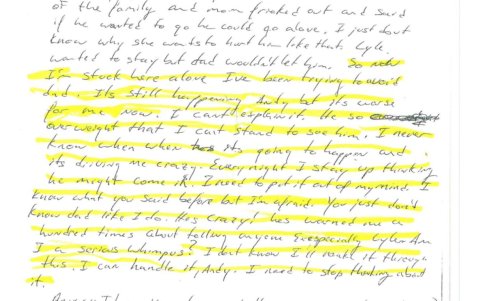 of the family and mom freaked out and said
if he wanted to go he could go alone. I just dont
know why she wants to hurt him like that. Lyle
wanted to stay but dad wouldn't let him. So now
I'm stuck here alone I've been trying to avoid
dad. Its still happening, Andy but its worse
for me now. I cant explain it. He so
overweight that I cant stand to see him. I never
know when when its going to happen and
its driving me crazy. Every night I stay up thinking
he might come in. I need to put it out of my mind. I
know what you said before but I'm afraid. You just don't
know dad like I do. Hes crazy! hes warned me a
hundred times about telling anyone especially Lyle. Am
I a serious whimpus? I dont know I'll make it through
this. I can handle it, Andy. I need to stop thinking about
it.